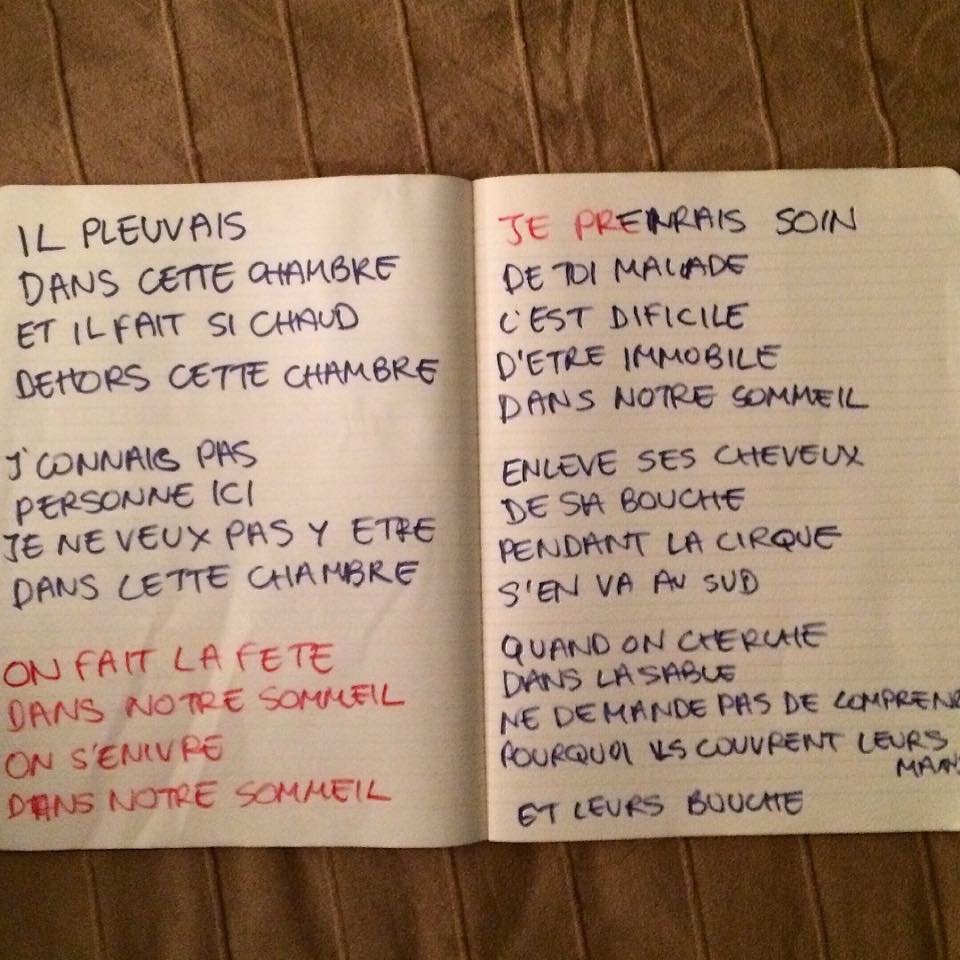 IL PLEUVAIS
DANS CETTE CHAMBRE
ET IL FAIT SI CHAUD
DEHORS CETTE CHAMBRE
J'CONNAIS PAS
PERSONNE ICI
JE NE VEUX PAS Y ETRE
DANS CETTE CHAMBRE
ON FAIT LA FETE
DANS NOTRE SOMMEIL
ON S'ENIVRE
DANS NOTRE SOMMEIL
JE PRENRAIS SOIN
DE TOI MALADE
C'EST DIFICILE
D'ETRE IMMOBILE
DANS NOTRE SOMMEIL
ENLEVE SES CHEVEUX
DE SA BOUCHE
PENDANT LA CIRQUE
S'EN VA AU SUD
QUAND ON CHERCHE
DANS LA SABLE
NE DEMANDE PAS DE COMPREND
POURQUOI ILS COUVRENT LEURS
MAINS
ET LEURS BOUCHE